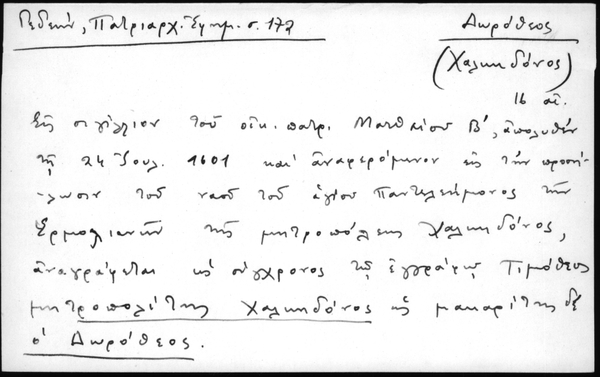 Γεδεών, Πατριαρχ. Ἐφημ. σ. 172
Δωρόθεος
(Χαλκηδόνος)
16 αἰ.
Εἰς σιγίλλιον τοῦ οἰκ. πατρ. Ματθαίου Β', ἀπολυθὲν
τῇ 24 Ἰουλ. 1601 καὶ ἀναφερόμενον εἰς τὴν προσή-
λωσιν τοῦ ναοῦ τοῦ ἁγίου Παντελεήμονος τῆς
τῆς μητροπόλεως Χαλκηδόνος,
ἀναγράφεται ὡς σύγχρονος τῷ ἐγγράφῳ Τιμόθεος
μητροπολίτης Χαλκηδόνος ὡς μακαρίτης δὲ
ὁ Δωρόθεος.